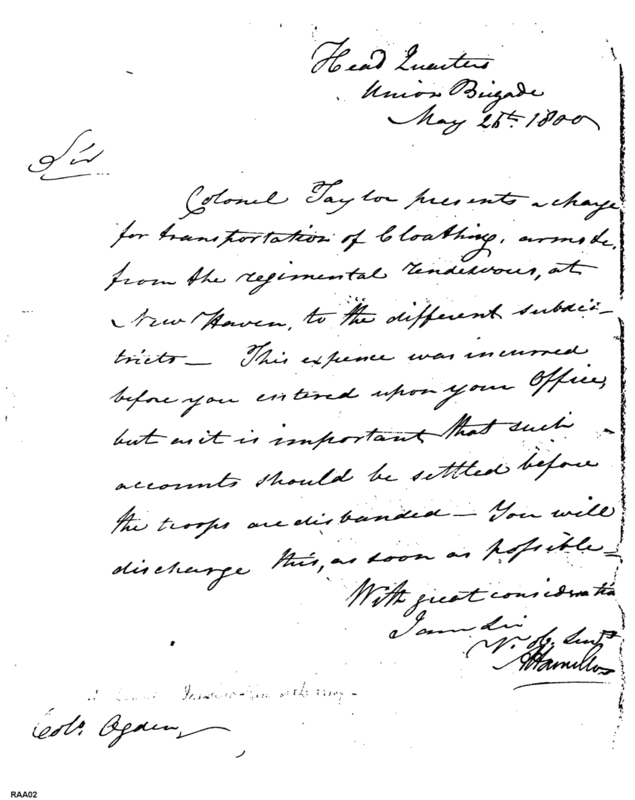 Head Quarters
Union Brigade
May 26th. 1800
Sir
Colonel Taylor presents a charge
for transportation of Cloathing, arms &c.
from the regimental rendesvous, at
New Haven, to the different subdis-
tricts— This expence was incurred
before you entered upon your Office,
but as it is important that such
accounts should be settled before
the troops are disbanded— You will
discharge this, as soon as possible—
With great consideratn
I am Sir
Yr. Ob. Servt
A Hamilton
Colo. Ogden
RAA02